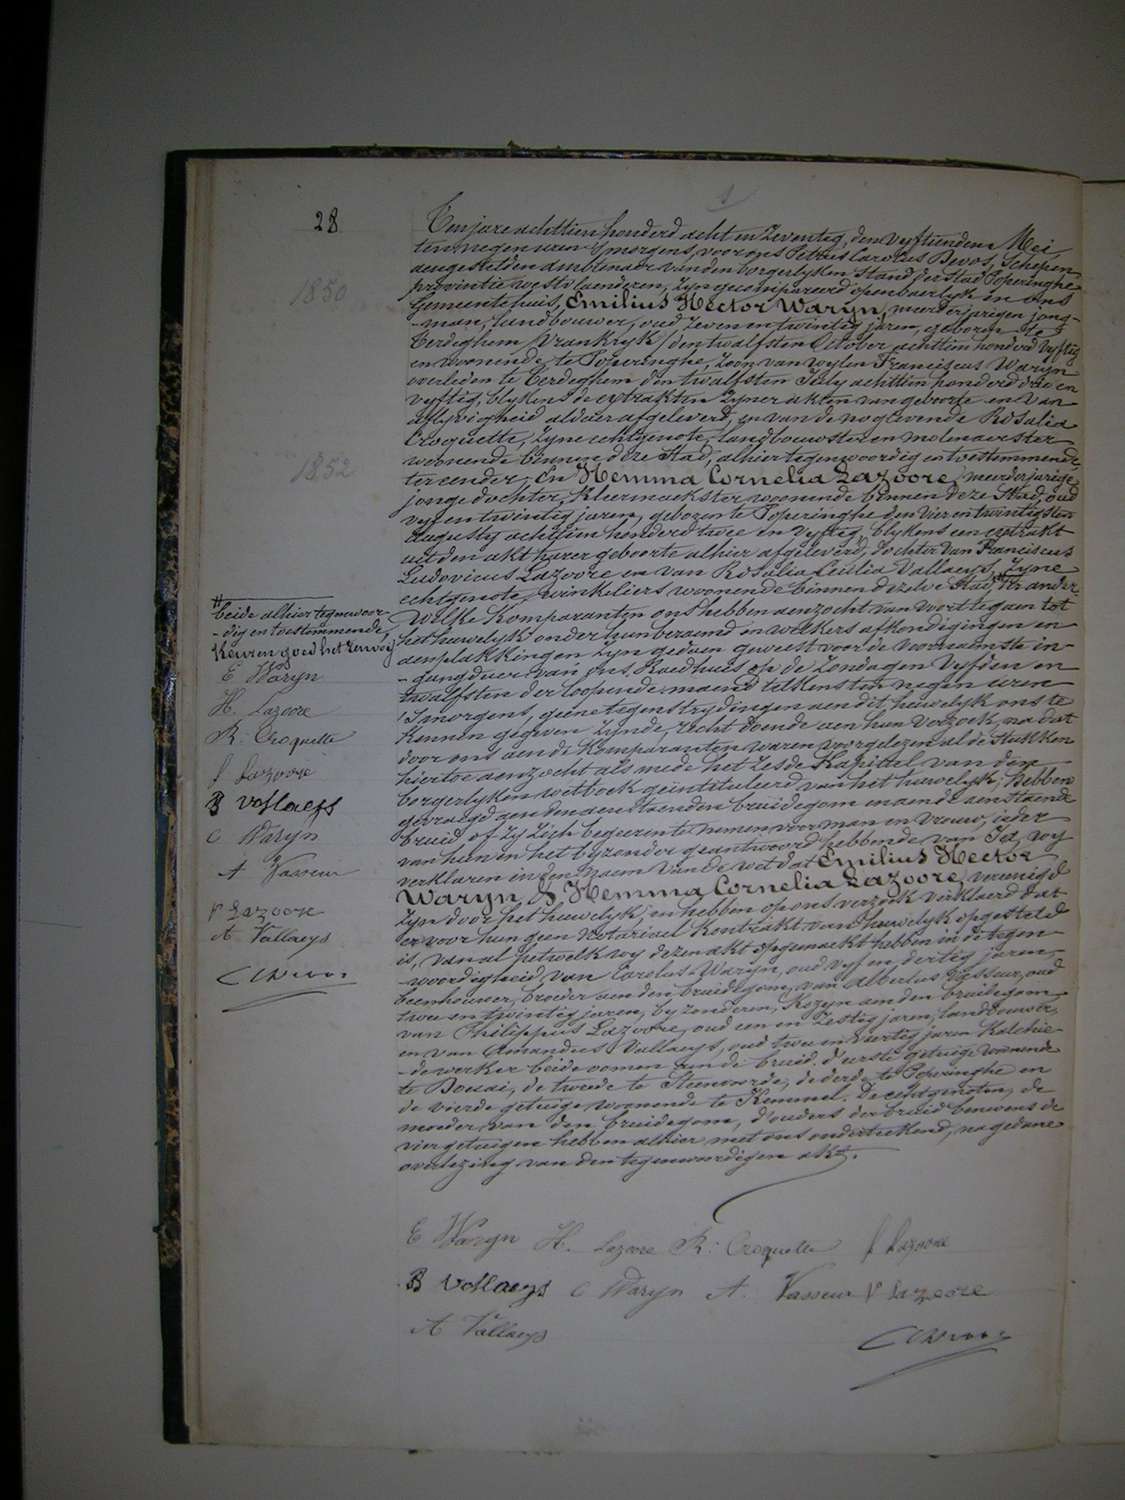 28
1850
1852
Ten jare achttien honderd acht en zeventig, den vyftienden Mei
ten negen uren 'smorgens, voor ons Petrus Carolus Devos, Schepen
aengestelden ambtenaer van den borgerlyken stand der stad Poperinghe
provintie westvlaenderen, zyn gecompareerd openbaerlyk in ons
Gemeentehuis, Emilius Hector Waryn, meerderjarigen jong-
-man, landbouwer, oud zeven en twintig jaren, geboren te
Eerdeghem /vrankryk/ den twalfsten October achttien honderd vyftig
en woonende te Poperinghe, zoon van wylen Franciscus Waryn
overleden te Eerdeghem den twalfsten July achttien honderd drie en
vyftig, blykens de extrakten zyner akten van geboorte en van
aflyvigheid aldaer afgeleverd, en van de nog levende Rosalia
Croquette, zyne echtgenote, landbouwster en molenaerster
woonende binnen deze stad, alhier tegenwoordig en toestemmende
ter eender; En Hemma Cornelia Lazoore, meerderjarige
jonge dochter, kleermaekster woonende binnen deze stad, oud
vyf en twintig jaren, geboren te Poperinghe den vier en twintigsten
Augusty achttien honderd twee en vyftig, blykens een extrakt
uit den akt harer geboorte alhier afgeleverd, dochter van Franciscus
Ludovicus Lazoore en van Rosalia Cecilia Vallaeys, zyne
echtgenote, winkeliers woonende binnen dezelve stad, # ter ander.
Welke komparanten ons hebben aenzocht van voort te gaen tot
het huwelyk onder hun beraemd en welkers afkondigingen en
aenplakkingen zyn gedaen geweest voor de voornaemste in-
-gangdeur van ons Raedhuis op de zondagen vyfden en
twalfsten der loopende maend telkens ten negen uren
'smorgens, geene tegenstrydingen aen dit huwelyk ons te
kennen gegeven zynde, recht doende aen hun verzoek, na dat
door ons aen de komparanten waren voorgelezen al de stukken
hiertoe aenzocht als mede het zesde kapittel van den
borgerlyken wetboek geintituleerd van het huwelyk; Hebben
gevraegd aen den aenstaenden bruidegom en aen de aenstaende
bruid of zy zich begeeren te nemen voor man en vrouw, ieder
van hun en het byzonder geantwoord hebbende van Ja, wy
verklaren in den Naem van de wet dat Emilius Hector
Waryn & Hemma Cornelia Lazoore, vereenigd
zyn door het huwelyk, en hebben op ons verzoek verklaerd dat
er voor hun geen Notariael kontrakt van huwelyk opgesteld
is, van al hetwelk wy dezen akt opgemaekt hebben in de tegen-
-woordigheid van Carolus Waryn, oud vyf en dertig jaren,
beenhouwer, broeder aen den bruidegom, van Albertus Vasseur, oud
twee en twintig jaren, byzonderen, kozyn aen den bruidegom
van Philippus Lazoore, oud een en zestig jaren, landbouwer,
en van Amandus Vallaeys, oud twee en veertig jaren kalchie-
-dewerker beide oomen aen de bruid. d'eerste getuige woonende
te Douai, de tweede te Steenvoorde, de derde te Poperinghe en
de vierde getuige woonende te Kemmel. De echtgenoten, de
moeder van den bruidegom, d'ouders der bruid benevens de
vier getuigen hebben alhier met ons onderteekend, na gedane
overlezing van den tegenwoordigen akt.
# beide alhier tegenwoor-
-dig en toestemmende,
Keuren goed het zenvoy
E Waryn
H. Lazoore
R: Croquette
f Lazoore
B vollaeys
C Waryn
A Vasseur
P Lazoore
A Vallaeys
E Waryn H. Lazoore R: Croquette f Lazoore
B vollaeys C Waryn A. Vasseur P Lazoore
A Vallaeys